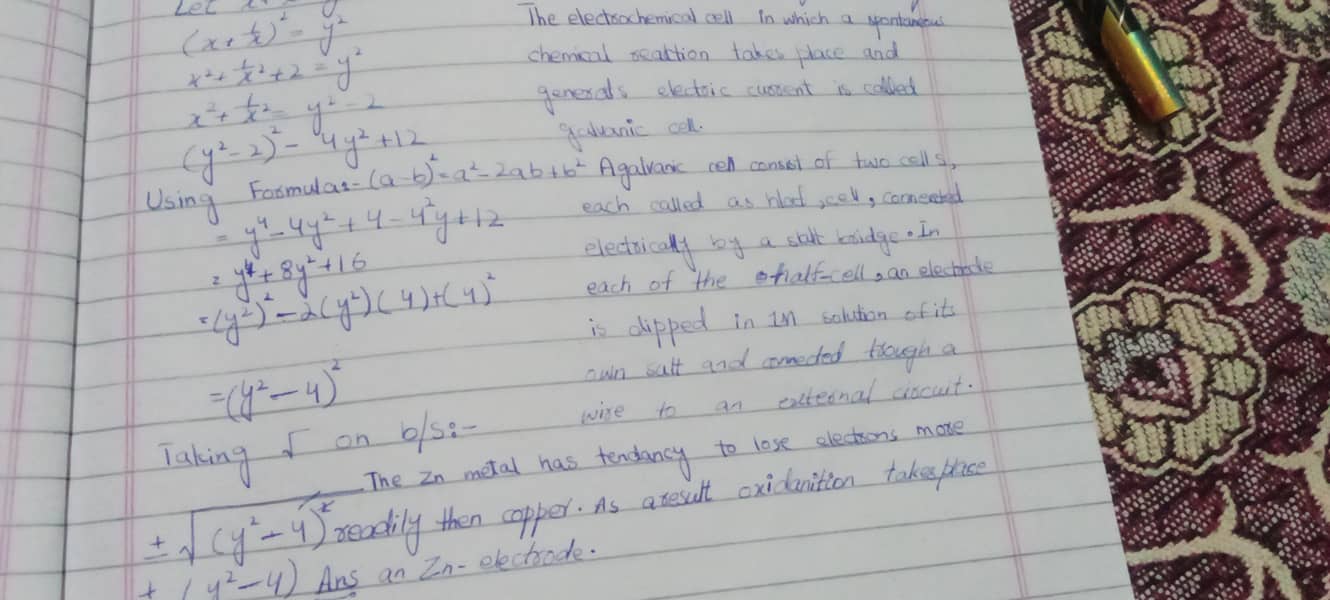 Let
(x + 1/x)² = y²
x² + 1/x² + 2 = y²
x² + 1/x² = y² - 2
(y² - 2)² - 4y² + 12
Using Formula:- (a-b)² = a² - 2ab + b²
= y⁴ - 4y² + 4 - 4²y + 12
= y⁴ + 8y² + 16
= (y²)² - 2(y²)(4) + (4)²
= (y² - 4)²
Taking √ on b/s:-
± √(y² - 4)²
± (y² - 4) Ans
The electrochemical cell in which a spontaneous
chemical reaction takes place and
generals electric current is called
galvanic cell.
A galvanic cell consist of two cells,
each called as half, cell, connected
electrically by a salt bridge. In
each of the half-cell, an electrode
is dipped in 1M solution of its
own salt and connected through a
wire to an external circuit.
The Zn metal has tendancy to lose electrons more
readily then copper. As aresult oxidanition takes place
an Zn-electrode.